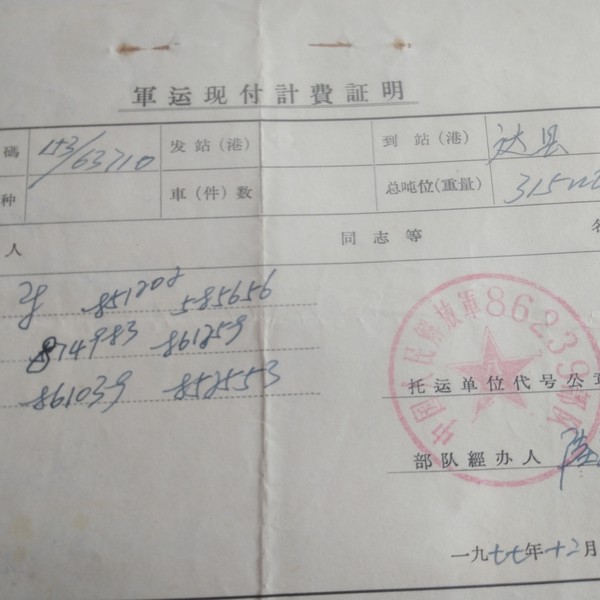 軍运现付計費証明
碼 153/63710 发站(港) 到站(港) 达县
种 車(件)数 总吨位(重量) 315
人 同志等 名
851208 585656
874983 861259
861039 852553
中国人民解放軍86239部队
托运单位代号公章
部队經办人
一九七七年十二月